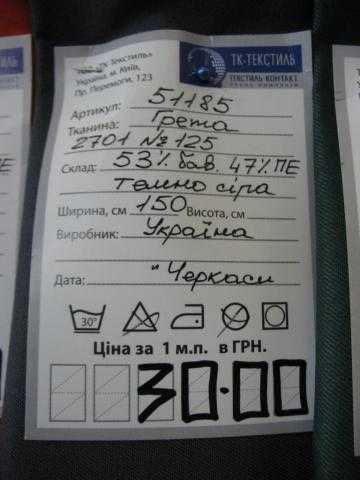 ТК-ТЕКСТИЛЬ
ТЕКСТИЛЬ-КОНТАКТ
«ТК Текстиль»
Україна, м. Київ,
Пр. Перемоги, 123
Артикул: 51185
Тканина: Грета
2701 №125
Склад: 53% бав. 47% ПЕ
темно сіра
Ширина, см 150 Висота, см
Виробник: Україна
Дата: "Черкаси
30°
Ціна за 1 м.п. в ГРН.
30.00